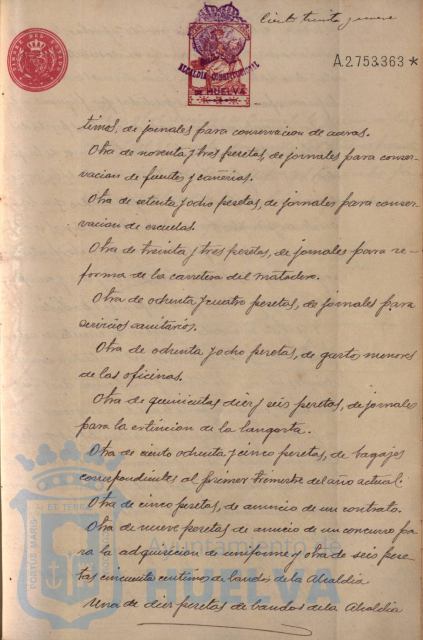 Ciento treinta y nueve
A.2753363 *
ALCALDIA CONSTITUCIONAL
DE HUELVA
timos, de jornales para conservacion de aceras.
Otra de noventa y tres pesetas, de jornales para conser-
vacion de fuentes y cañerias.
Otra de setenta y ocho pesetas, de jornales para conser-
vacion de escuelas.
Otra de treinta y tres pesetas, de jornales para re-
forma de la carretera del matadero.
Otra de ochenta y cuatro pesetas, de jornales para
servicios sanitarios.
Otra de ochenta y ocho pesetas, de gastos menores
de las oficinas.
Otra de quinientas diez y seis pesetas, de jornales
para la extincion de la langosta.
Otra de ciento ochenta y cinco pesetas, de bagajes
correspondientes al primer trimestre del año actual.
Otra de cinco pesetas, de anuncio de un contrato.
Otra de nueve pesetas de anuncio de un concurso pa
ra la adquisicion de uniforme y otra de seis pese
tas cincuenta centimos de bandos de la Alcaldia
Una de diez pesetas de bandos de la Alcaldia
PORTUS MARIS ET TERRE
Ayuntamiento de
HUELVA